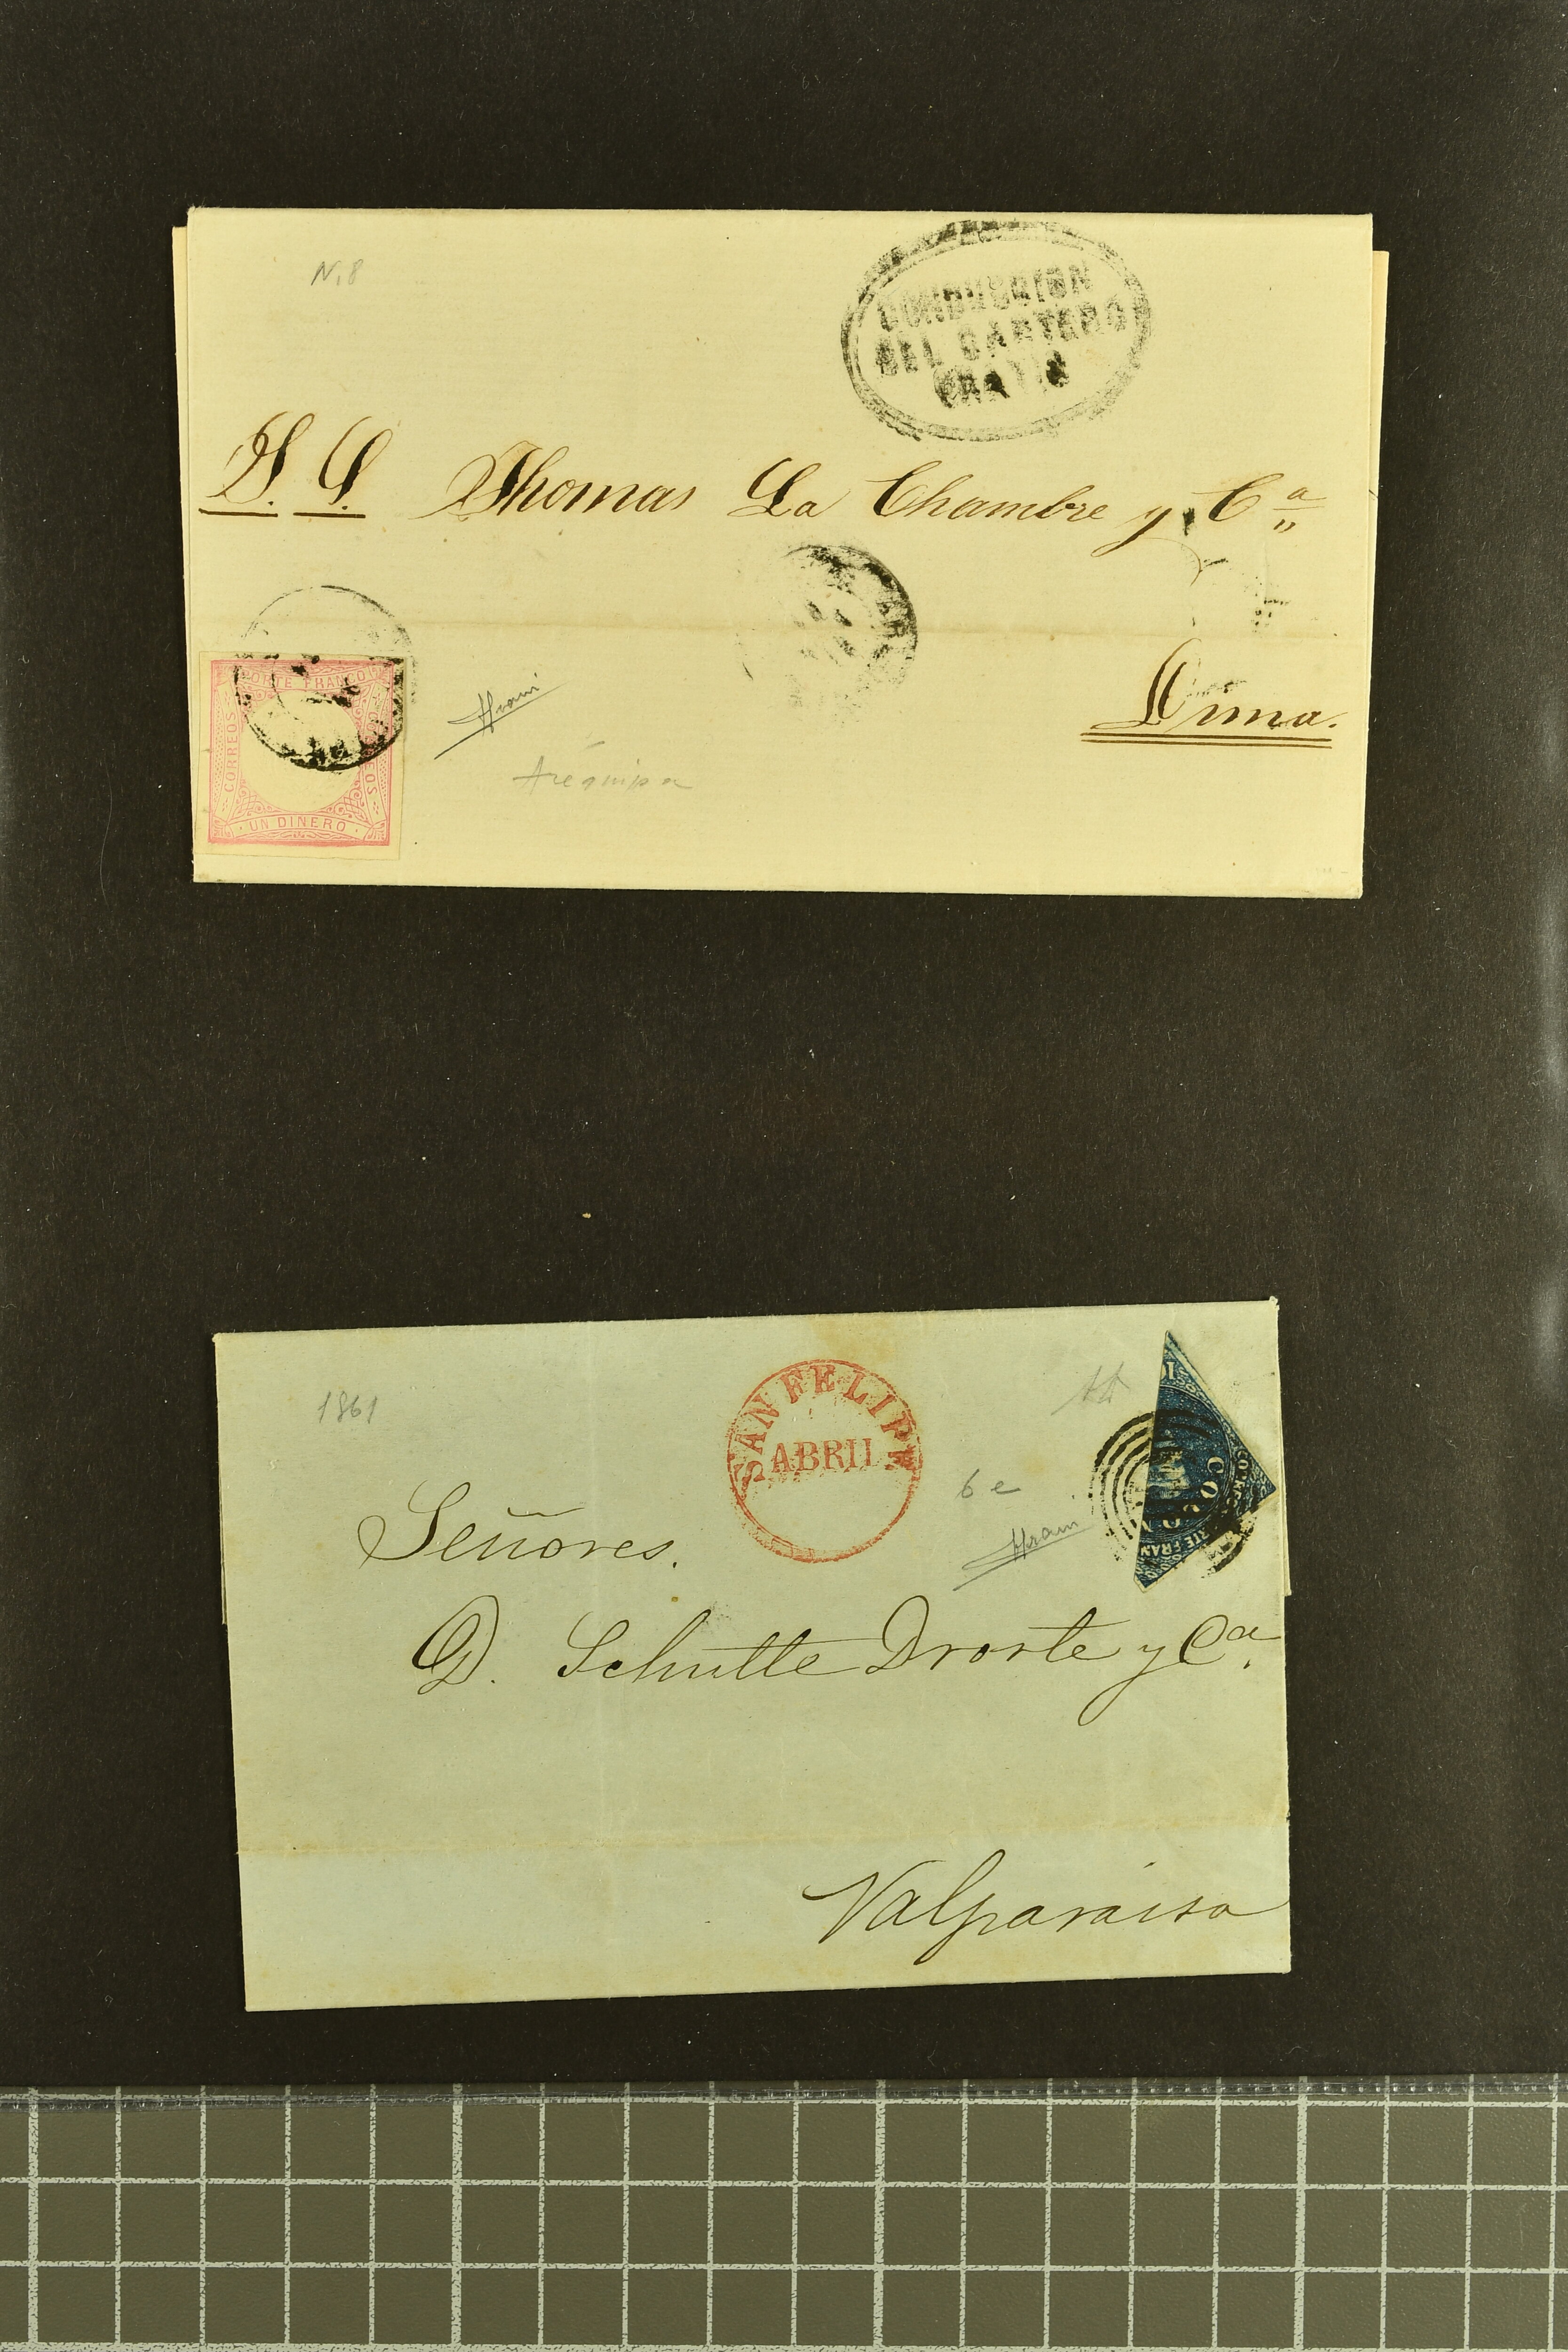 N. 8
CONDUCCION
DEL CARTERO
GRATIS
S. S. Thomas La Chambre y Cª
PORTE FRANCO
CORREOS
CORREOS
UN DINERO
Arequipa
Lima.
1861
SAN FELIPE
ABRIL
6 e
Señores.
D. Schutte Droste y Ca.
Valparaiso